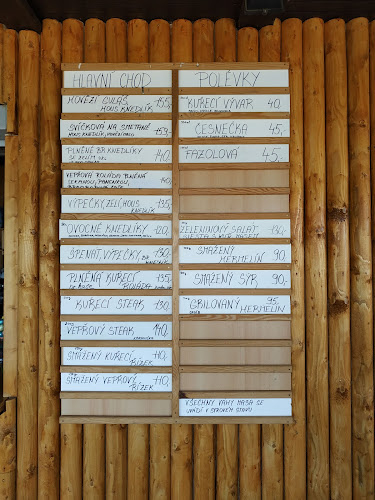 HLAVNÍ CHOD
HOVĚZÍ GULÁŠ
HOUS. KNEDLÍK 155,-
SVÍČKOVÁ NA SMETANĚ
HOUS. KNEDLÍK
PLNĚNÉ BR. KNEDLÍKY
SE ZELÍM 140,-
VEPŘOVÁ ROLÁDA PLNĚNÁ
VÝPEČKY, ZELÍ, HOUS.
KNEDLÍK 135,-
OVOCNÉ KNEDLÍKY 120,-
ŠPENÁT, VÝPEČKY, BR.
KNEDLÍK 130,-
PLNĚNÁ KUŘECÍ
ROLÁDA 135,-
KUŘECÍ STEAK 130
VEPŘOVÝ STEAK 140,-
SMAŽENÝ KUŘECÍ
ŘÍZEK 110,-
SMAŽENÝ VEPŘOVÝ
ŘÍZEK 110,-
POLÉVKY
KUŘECÍ VÝVAR 40,-
ČESNEČKA 45,-
FAZOLOVÁ 45,-
ZELENINOVÝ SALÁT
SMAŽENÝ
HERMELÍN 90,-
SMAŽENÝ SÝR 90,-
GRILOVANÝ 95,-
HERMELÍN
VŠECHNY VÁHY MASA SE
UVÁDÍ V SYROVÉM STAVU